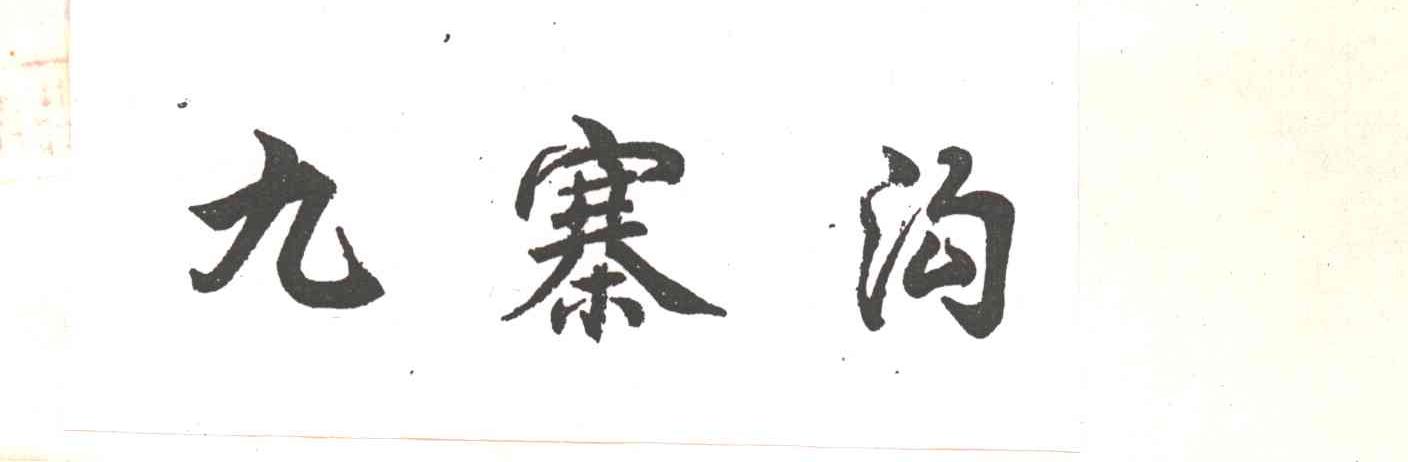 九寨沟